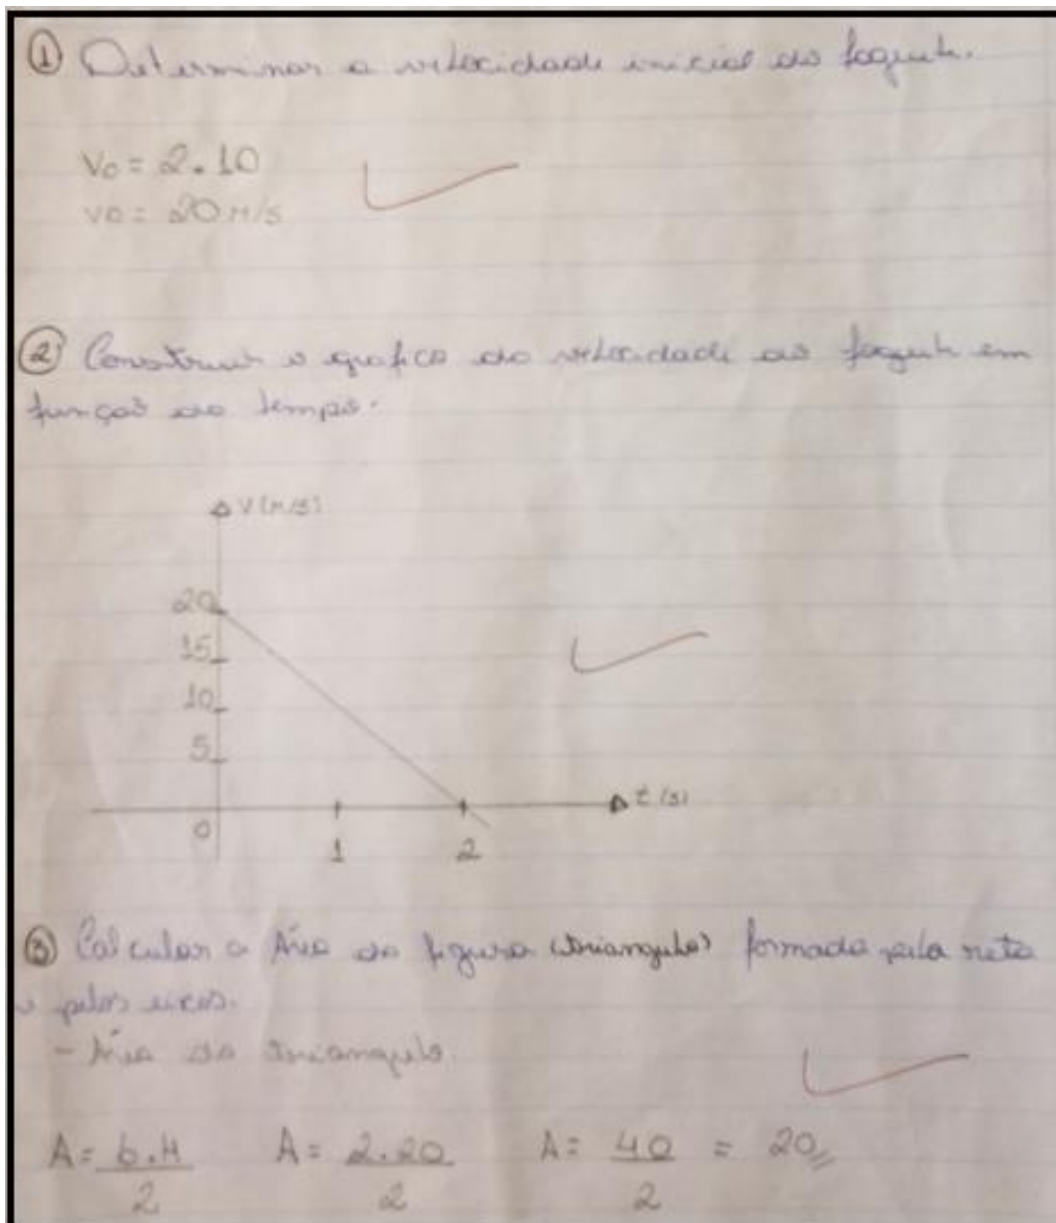 ① Determinar a velocidade inicial do foguete.
V0 = 2.10
V0 = 20 M/S
② Construir o grafico da velocidade do foguete em
função do tempo.
V (M/S)
20
15
10
5
0
1
2
t (s)
③ Calcular a Área da figura (triangulo) formada pela reta
e pelos eixos.
- Área do triangulo.
A = b.H / 2 A = 2.20 / 2 A = 40 / 2 = 20